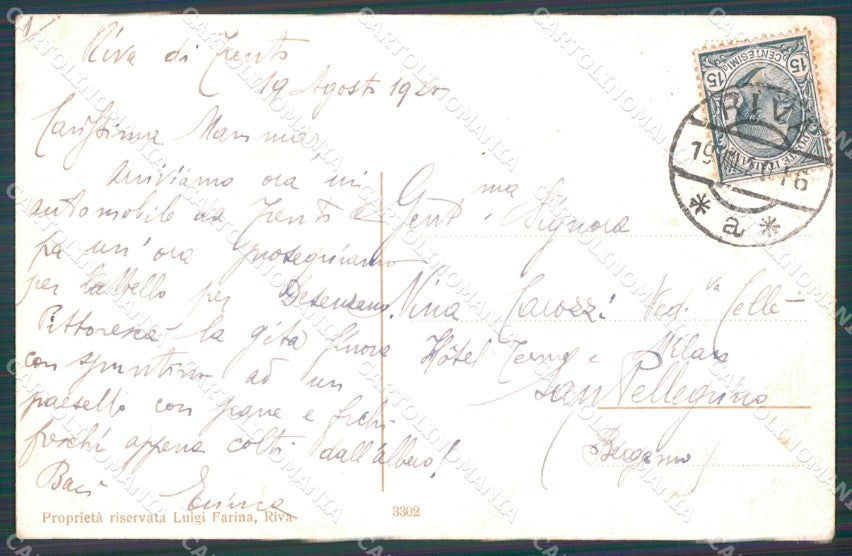 Riva di Trento
19 Agosto 192
Carissima Mamma,
Arriviamo ora in
automobile da Trento e
fra un'ora proseguiamo
per battello per Desenzano.
Pittoresca la gita finora
con spuntino ad un
paesello con pane e fichi
freschi appena colti dall'albero!
Baci
Proprietà riservata Luigi Farina, Riva
3302
Gent.ma Signora
Nina Carozzi Ved.va Celle
Hôtel Terme e Milan
San Pellegrino
(Bergamo)
15 CENTESIMI 15
POSTE ITALIANE
RIVA
19
16
* a *
CARTOLINOMANIA